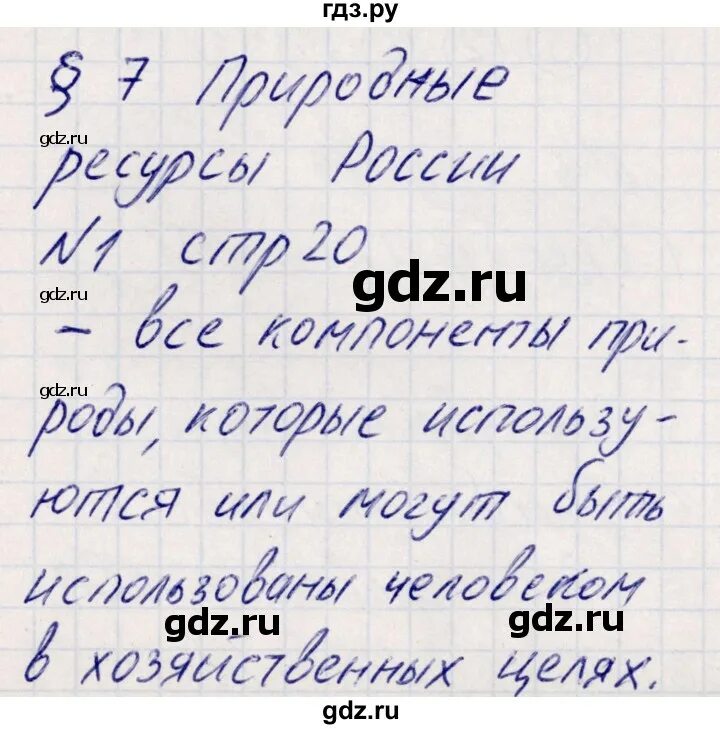 гдз.ру
§ 7 Природные
gdz.ru
ресурсы России
N1 стр 20
gdz.ru
gdz.ru
- все компоненты при-
gdz.ru
роды, которые использу-
ются или могут быть
использованы человеком
gdz.ru
gdz.ru
в хозяйственных целях.
gdz.ru